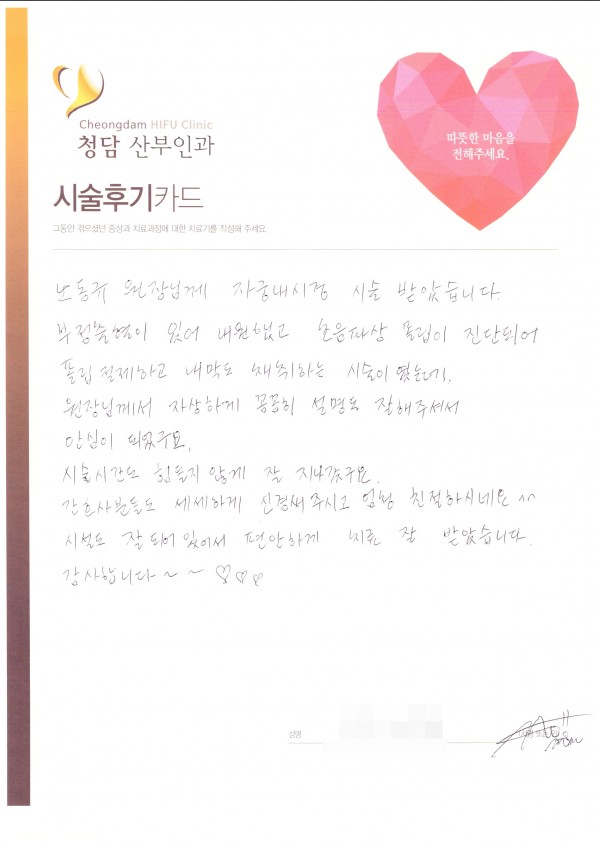 Cheongdam HIFU Clinic
청담 산부인과
따뜻한 마음을
전해주세요.
시술후기카드
그동안 겪으셨던 증상과 치료과정에 대한 치료기를 작성해 주세요.
노동규 원장님께 자궁내시경 시술 받았습니다.
부정출혈이 있어 내원했고 초음파상 폴립이 진단되어
폴립 절제하고 내막도 채취하는 시술이였는데,
원장님께서 자상하게 꼼꼼히 설명도 잘해주셔서
안심이 되었구요,
시술시간도 힘들지 않게 잘 지나갔구요.
간호사분들도 세세하게 신경써주시고 엄청 친절하시네요 ^^
시설도 잘 되어 있어서 편안하게 치료 잘 받았습니다.
감사합니다~ ~ ~ ♡♡♡
성명